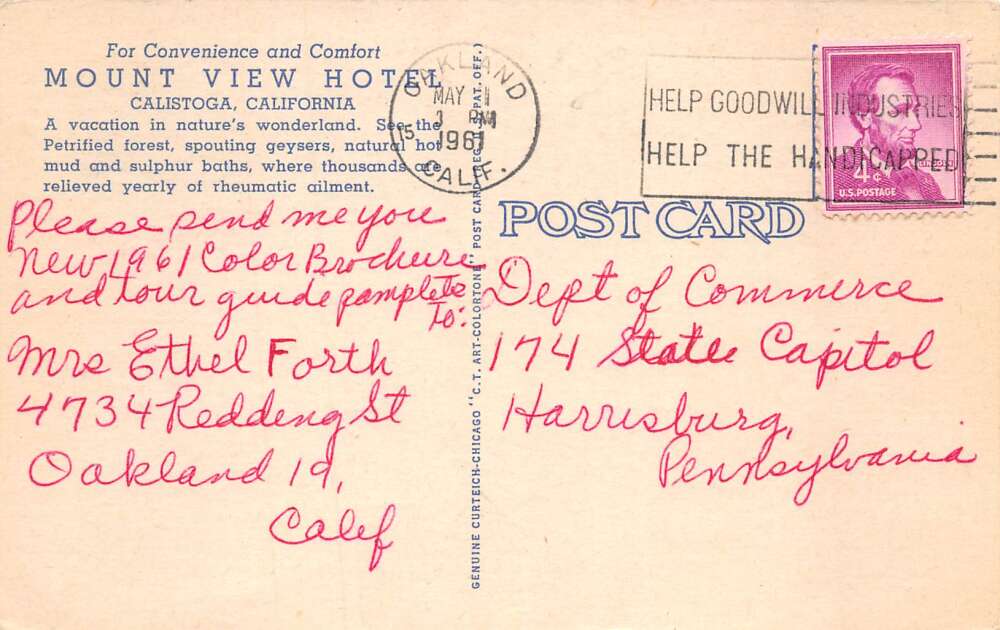 For Convenience and Comfort
MOUNT VIEW HOTEL
CALISTOGA, CALIFORNIA
A vacation in nature's wonderland. See the
Petrified forest, spouting geysers, natural hot
mud and sulphur baths, where thousands are
relieved yearly of rheumatic ailment.
Please send me you
New 1961 Color Brochure
and tour guide pamplets
To:
Mrs Ethel Forth
4734 Reddeng St
Oakland 19,
Calif
GENUINE CURTEICH-CHICAGO "C.T. ART-COLORTONE" POST CARD (REG. U.S. PAT. OFF.)
OAKLAND
MAY 1
PM
1961
15
CALIF.
HELP GOODWILL INDUSTRIES
HELP THE HANDICAPPED
LINCOLN
4¢
U.S. POSTAGE
POST CARD
Dept of Commerce
174 State Capitol
Harrisburg,
Pennsylvania